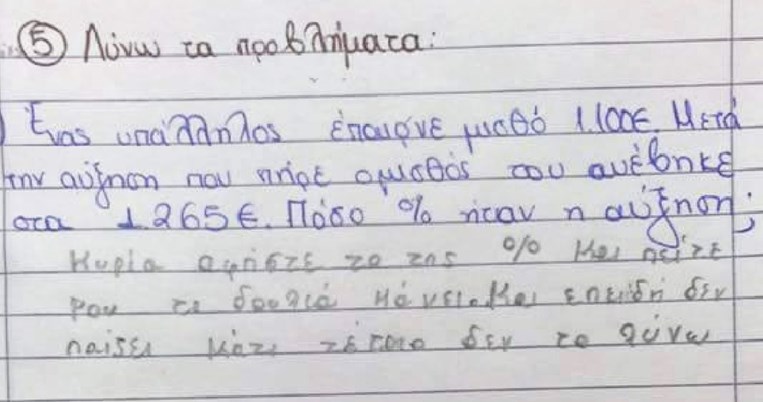 ⑤ Λύνω τα προβλήματα:
Ένας υπάλληλος έπαιρνε μισθό 1.100€. Μετά
την αύξηση που πήρε ο μισθός του ανέβηκε
στα 1.265€. Πόσο % ήταν η αύξηση;
Κυρία αφήστε το της % και πείτε
μου τι δουλειά κάνει. Και επειδή δεν
παίζει κάτι τέτοιο δεν το λύνω